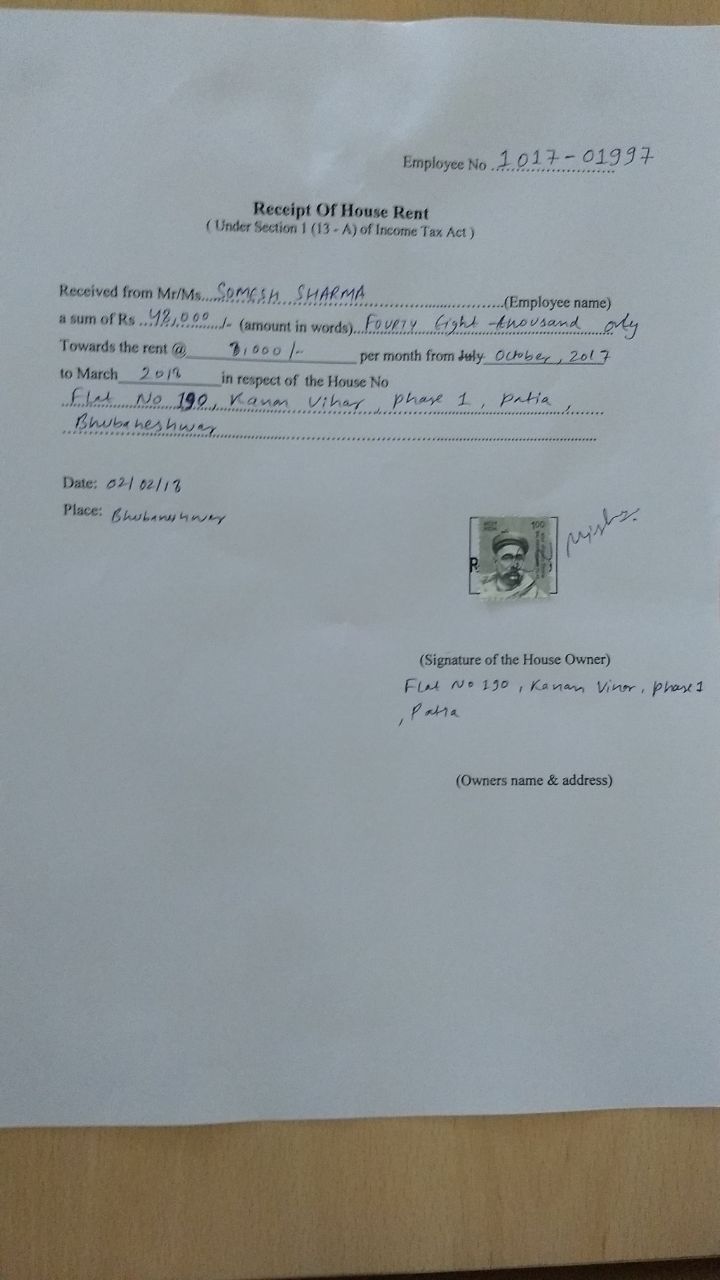 Employee No 1017-01997
Receipt Of House Rent
( Under Section 1 (13 - A) of Income Tax Act )
Received from Mr/Ms. SOMESH SHARMA (Employee name)
a sum of Rs 48,000 /- (amount in words) Fourty Eight thousand only
Towards the rent @ 8,000 /- per month from July October, 2017
to March 2018 in respect of the House No
Flat No 190, Kanan Vihar, phase 1, patia,
Bhubaneshwar
Date: 02/02/18
Place: Bhubaneshwar
100
R
(Signature of the House Owner)
Flat No 190, Kanan Vihar, phase 1
, Patia
(Owners name & address)